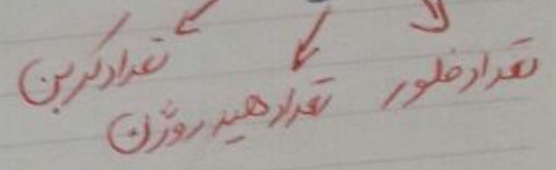 تعداد کربن
تعداد هیدروژن
تعداد فلور